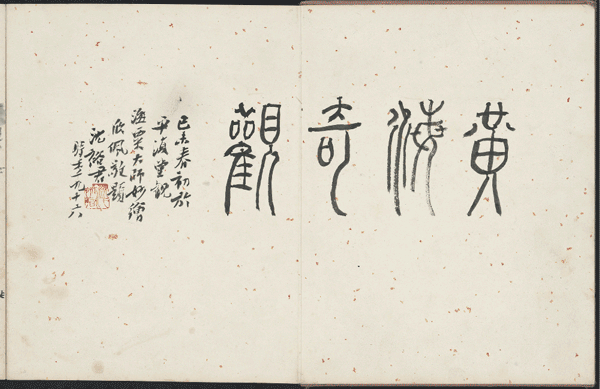 黃海奇觀
己未春初於
平復堂觀
海粟大師妙繪
欣佩敬題
沈裕君
時年九十六